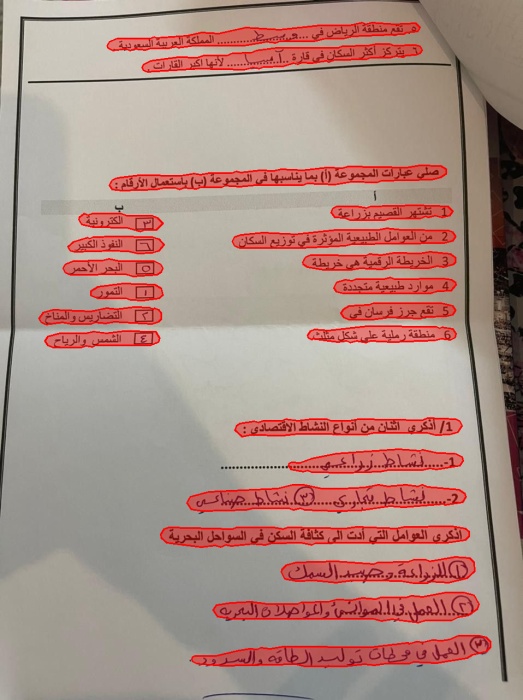 ٥. تقع منطقة الرياض في ...وسط... المملكة العربية السعودية
٦. يتركز أكثر السكان في قارة ..آسيا.. لأنها اكبر القارات .
صلي عبارات المجموعة (أ) بما يناسبها في المجموعة (ب) باستعمال الأرقام :
أ ب
1 تشتهر القصيم بزراعة ٣ الكترونية
2 من العوامل الطبيعية المؤثرة في توزيع السكان ٦ النفوذ الكبير
3 الخريطة الرقمية هي خريطة ٥ البحر الأحمر
4 موارد طبيعية متجددة ١ التمور
5 تقع جزر فرسان في ٢ التضاريس والمناخ
6 منطقة رملية على شكل مثلث ٤ الشمس والرياح
1/ أذكري اثنان من أنواع النشاط الاقتصادي :
1-....نشاط زراعي....
2-....نشاط تجاري.... ③ نشاط صناعي
اذكري العوامل التي أدت الى كثافة السكن في السواحل البحرية
① الزراعة وصيد السمك
② العمل في الموانئ والمواصلات البحرية
③ العمل في محطات توليد الطاقة والسدود